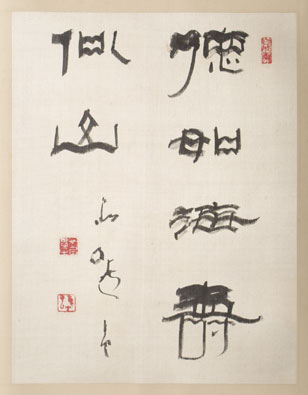 德如海壽
似山